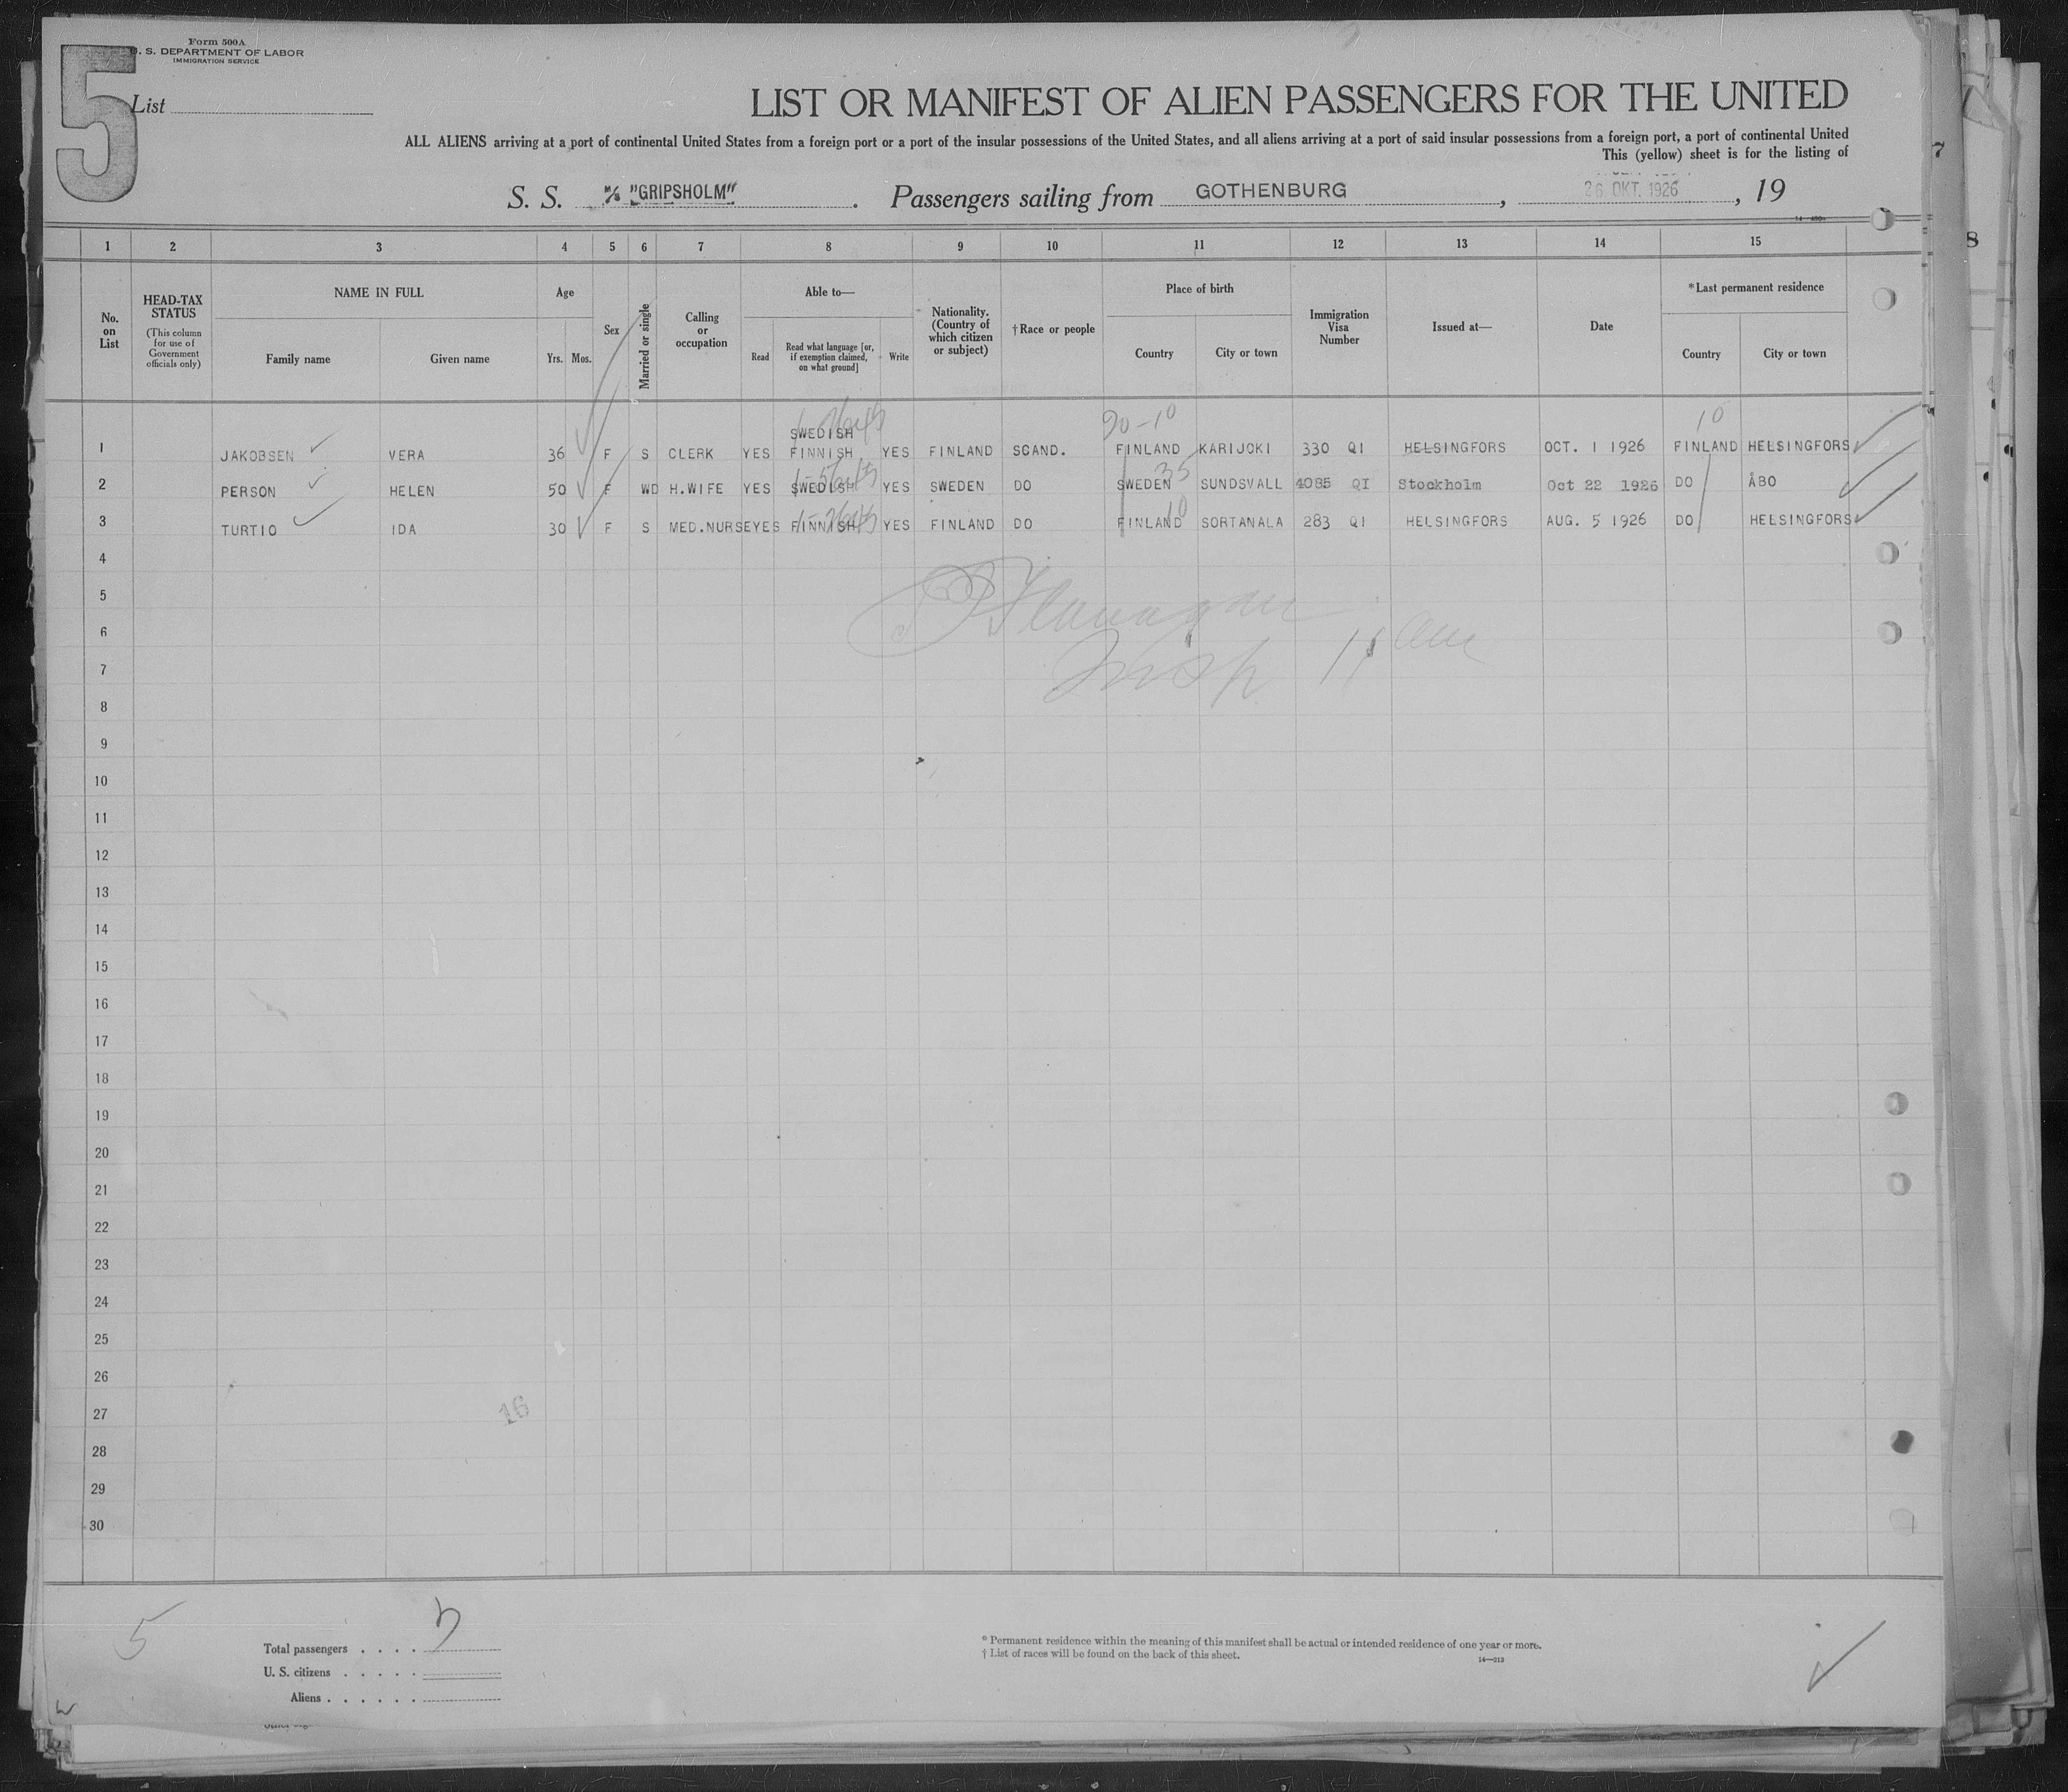 Form 500A
U. S. DEPARTMENT OF LABOR
IMMIGRATION SERVICE
5
List
LIST OR MANIFEST OF ALIEN PASSENGERS FOR THE UNITED
ALL ALIENS arriving at a port of continental United States from a foreign port or a port of the insular possessions of the United States, and all aliens arriving at a port of said insular possessions from a foreign port, a port of continental United
This (yellow) sheet is for the listing of
S. S. M/S "GRIPSHOLM". Passengers sailing from GOTHENBURG, 26 OKT. 1926, 19
1 2 3 4 5 6 7 8 9 10 11 12 13 14 15
No. on List
HEAD-TAX STATUS
(This column for use of Government officials only)
NAME IN FULL
Family name Given name
Age
Yrs. Mos.
Sex
Married or single
Calling or occupation
Able to—
Read
Read what language [or, if exemption claimed, on what ground]
Write
Nationality. (Country of which citizen or subject)
†Race or people
Place of birth
Country City or town
Immigration Visa Number
Issued at—
Date
*Last permanent residence
Country City or town
90-10 10
1 JAKOBSEN VERA 36 F S CLERK YES SWEDISH FINNISH YES FINLAND SCAND. FINLAND KARIJOKI 330 QI HELSINGFORS OCT. 1 1926 FINLAND HELSINGFORS
35
2 PERSON HELEN 50 F WD H.WIFE YES SWEDISH YES SWEDEN DO SWEDEN SUNDSVALL 4085 QI Stockholm Oct 22 1926 DO ÅBO
10
3 TURTIO IDA 30 F S MED.NURSE YES FINNISH YES FINLAND DO FINLAND SORTANALA 283 QI HELSINGFORS AUG. 5 1926 DO HELSINGFORS
4
5
Flanagan
6
Insp
7
8
9
10
11
12
13
14
15
16
17
18
19
20
21
22
23
24
25
26
27
16
28
29
30
5
Total passengers . . . .
U. S. citizens . . . . .
Aliens . . . . . .
* Permanent residence within the meaning of this manifest shall be actual or intended residence of one year or more.
† List of races will be found on the back of this sheet.
14—213
7
8